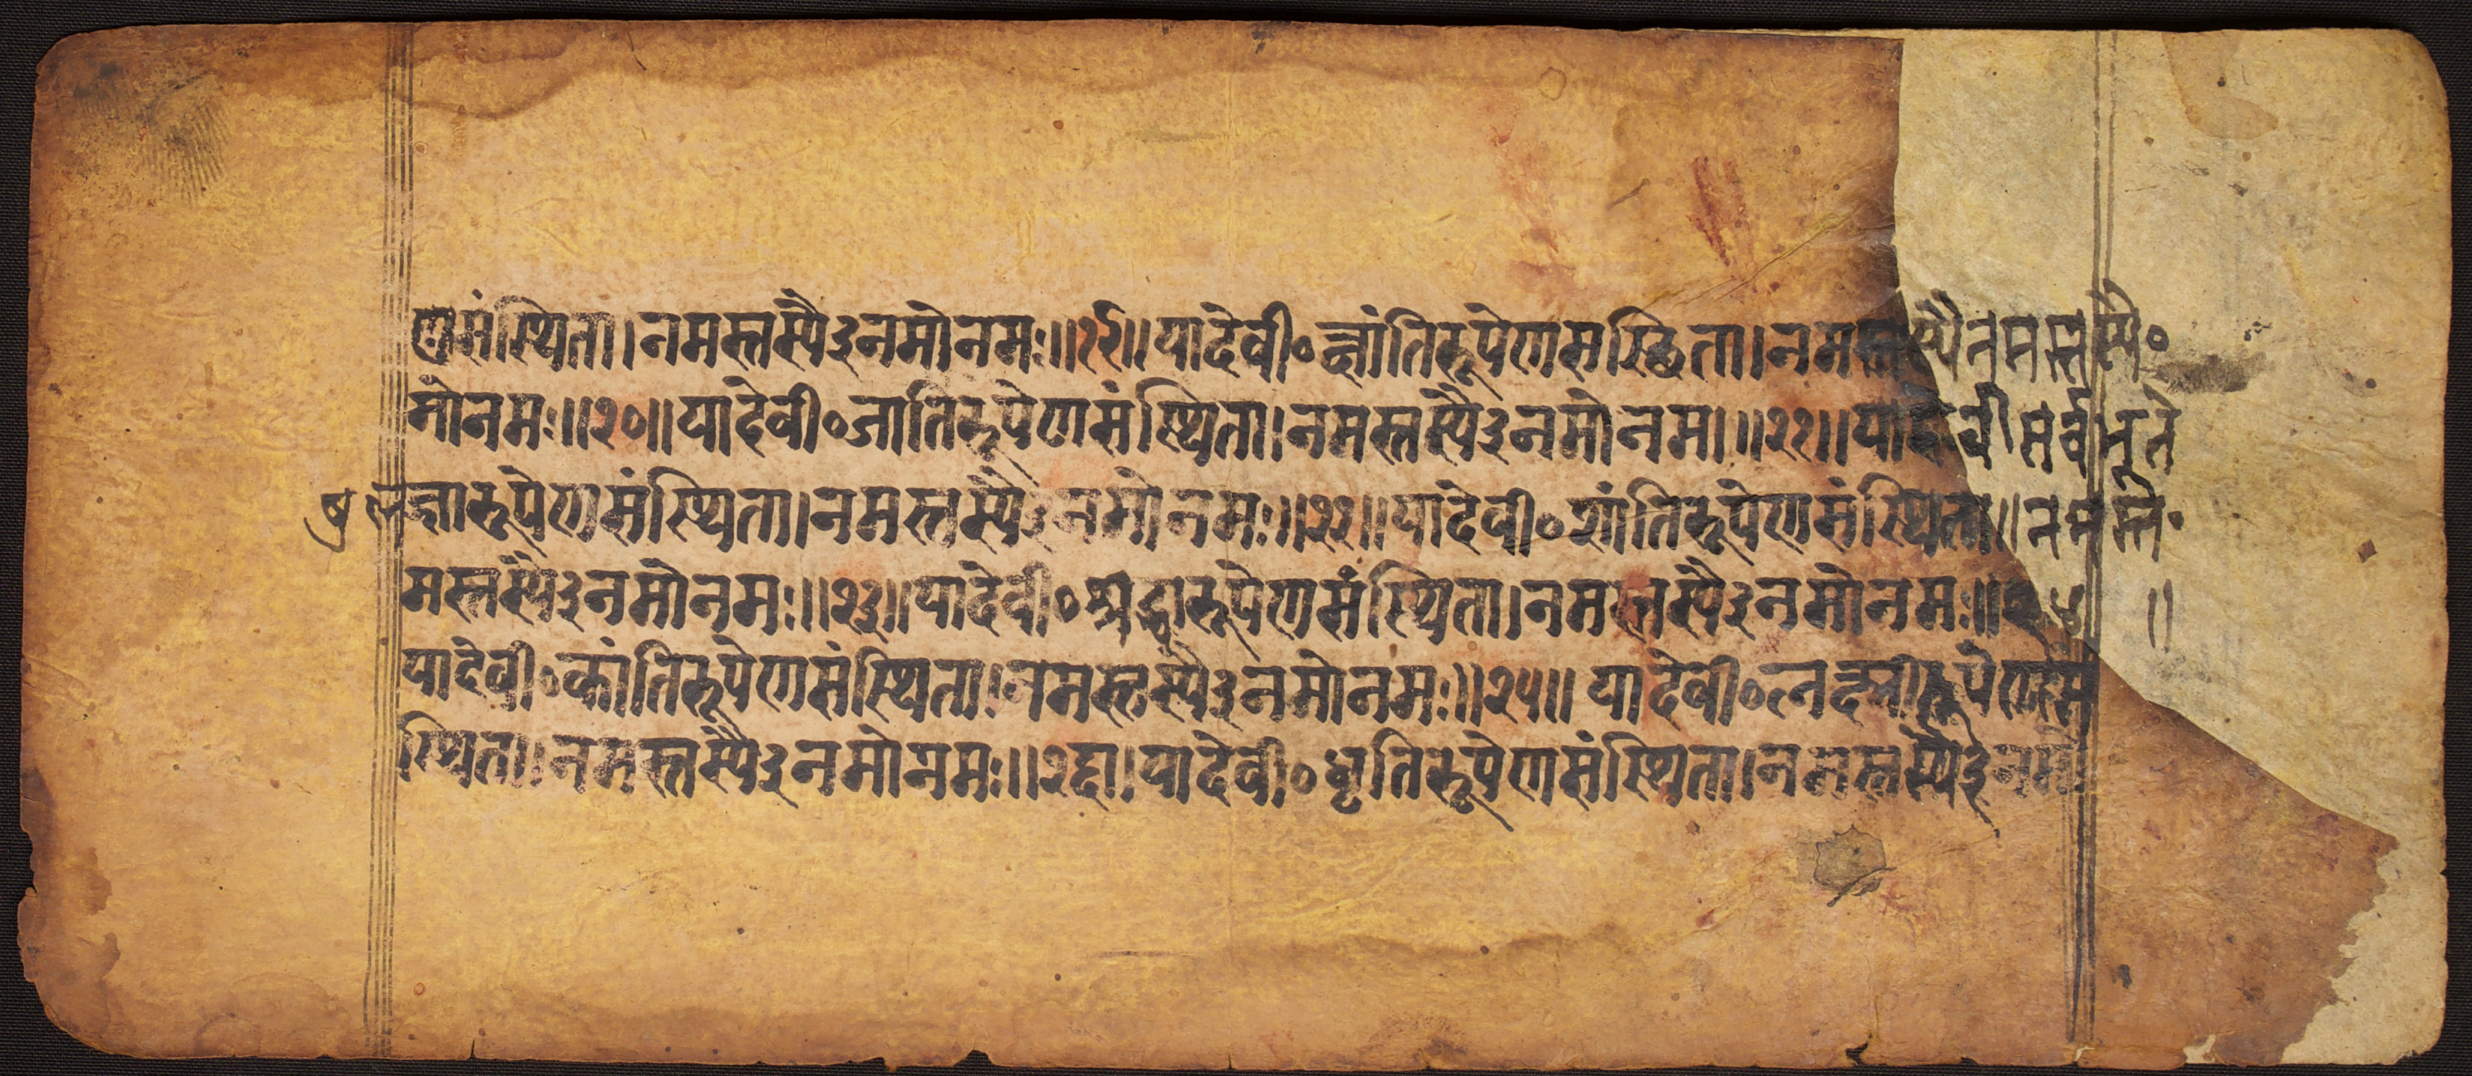 णसंस्थिता।नमस्तस्यै३नमोनमः॥१९॥यादेवी०क्षांतिरूपेणसंस्थिता।नमस्तस्यैनमस्तस्यै०
मोनमः॥२०॥यादेवी०जातिरूपेणसंस्थिता।नमस्तस्यै३नमोनम।॥२१॥यादेवीसर्वभूते
षुलज्जारूपेणसंस्थिता।नमस्तस्यै३नमोनमः॥२२॥यादेवी०शांतिरूपेणसंस्थिता॥नमस्ते०
मस्तस्यै३नमोनमः॥२३॥यादेवी०श्रद्धारूपेणसंस्थिता।नमस्तस्यै३नमोनमः॥२४॥
यादेवी०कांतिरूपेणसंस्थिता।नमस्तस्यै३नमोनमः॥२५॥यादेवी०लक्ष्मीरूपेणसं
स्थिता।नमस्तस्यै३नमोनमः॥२६॥यादेवी०धृतिरूपेणसंस्थिता।नमस्तस्यै३नमो